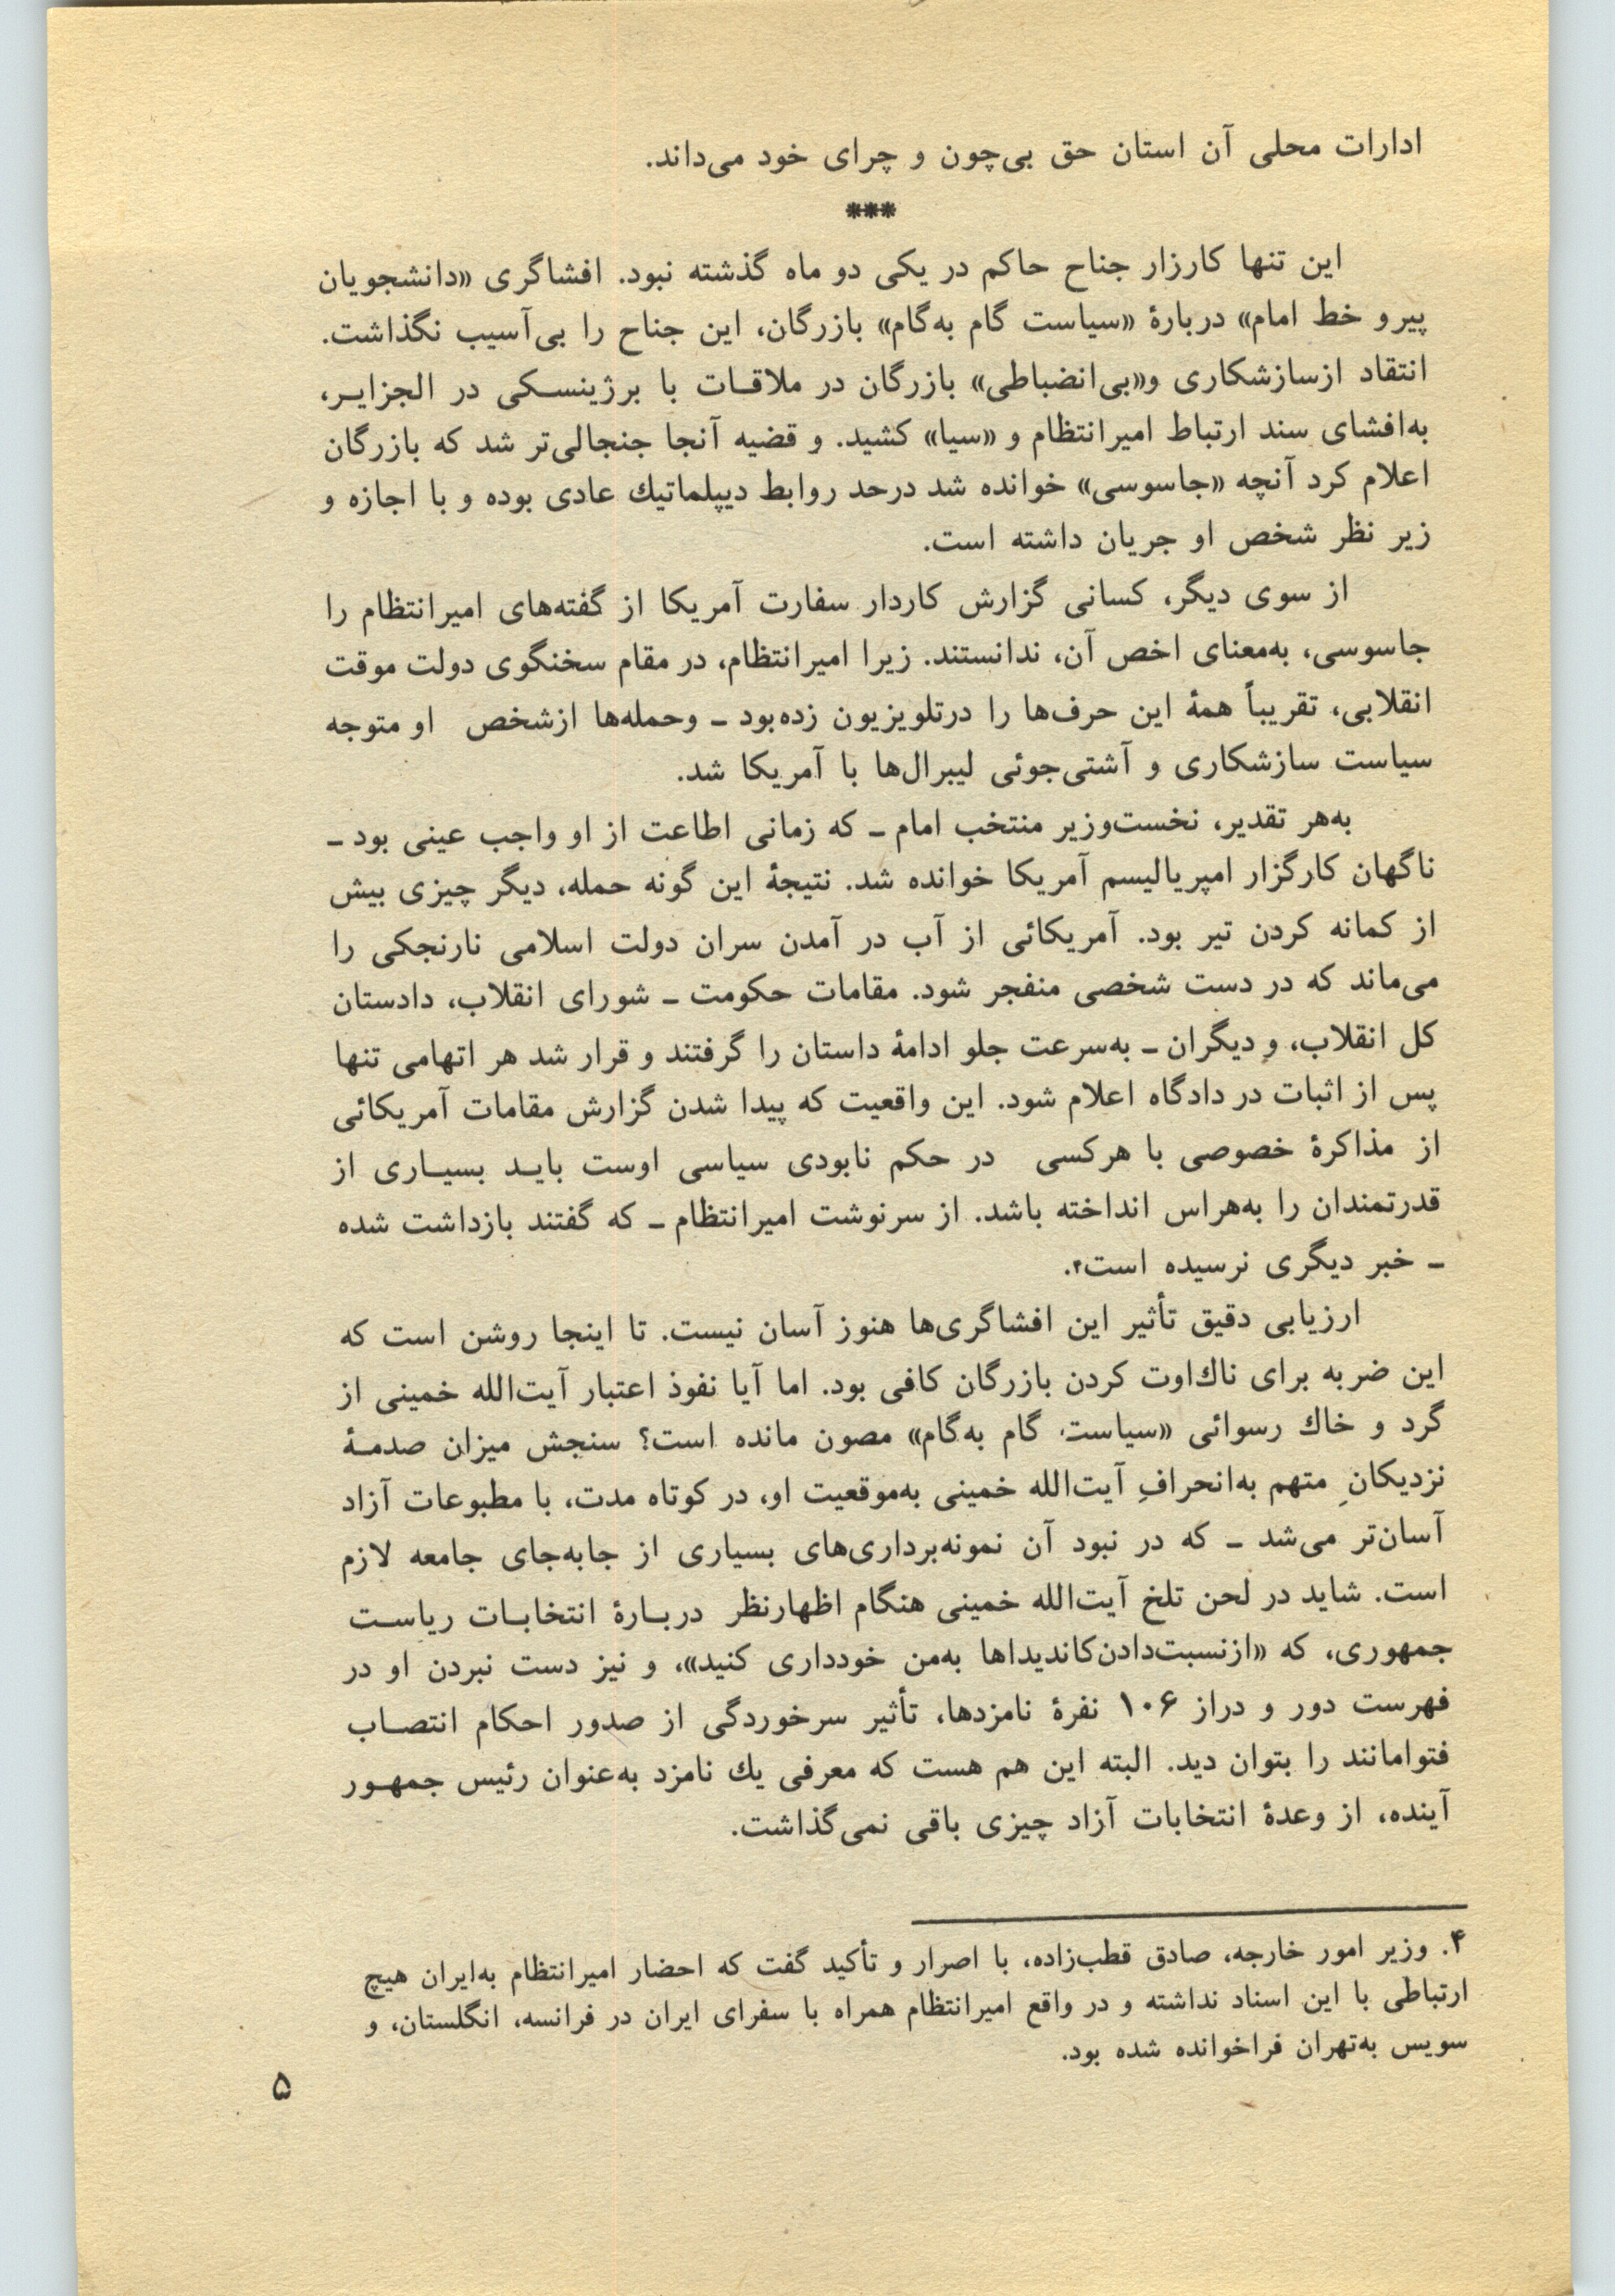 ادارات محلی آن استان حق بی‌چون و چرای خود می‌داند.
***
این تنها کارزار جناح حاکم در یکی دو ماه گذشته نبود. افشاگری «دانشجویان
پیرو خط امام» دربارهٔ «سیاست گام به‌گام» بازرگان، این جناح را بی‌آسیب نگذاشت.
انتقاد ازسازشکاری و«بی‌انضباطی» بازرگان در ملاقـات با برژینسـکی در الجزایـر،
به‌افشای سند ارتباط امیرانتظام و «سیا» کشید. و قضیه آنجا جنجالی‌تر شد که بازرگان
اعلام کرد آنچه «جاسوسی» خوانده شد درحد روابط دیپلماتیك عادی بوده و با اجازه و
زیر نظر شخص او جریان داشته است.
از سوی دیگر، کسانی گزارش کاردار سفارت آمریکا از گفته‌های امیرانتظام را
جاسوسی، به‌معنای اخص آن، ندانستند. زیرا امیرانتظام، در مقام سخنگوی دولت موقت
انقلابی، تقریباً همهٔ این حرف‌ها را درتلویزیون زده‌بود ـ وحمله‌ها ازشخص او متوجه
سیاست سازشکاری و آشتی‌جوئی لیبرال‌ها با آمریکا شد.
به‌هر تقدیر، نخست‌وزیر منتخب امام ـ که زمانی اطاعت از او واجب عینی بود ـ
ناگهان کارگزار امپریالیسم آمریکا خوانده شد. نتیجهٔ این گونه حمله، دیگر چیزی بیش
از کمانه کردن تیر بود. آمریکائی از آب در آمدن سران دولت اسلامی نارنجکی را
می‌ماند که در دست شخصی منفجر شود. مقامات حکومت ـ شورای انقلاب، دادستان
کل انقلاب، و دیگران ـ به‌سرعت جلو ادامهٔ داستان را گرفتند و قرار شد هر اتهامی تنها
پس از اثبات در دادگاه اعلام شود. این واقعیت که پیدا شدن گزارش مقامات آمریکائی
از مذاکرهٔ خصوصی با هرکسی در حکم نابودی سیاسی اوست بایـد بسیـاری از
قدرتمندان را به‌هراس انداخته باشد. از سرنوشت امیرانتظام ـ که گفتند بازداشت شده
ـ خبر دیگری نرسیده است۴.
ارزیابی دقیق تأثیر این افشاگری‌ها هنوز آسان نیست. تا اینجا روشن است که
این ضربه برای ناك‌اوت کردن بازرگان کافی بود. اما آیا نفوذ اعتبار آیت‌الله خمینی از
گرد و خاك رسوائی «سیاست گام به‌گام» مصون مانده است؟ سنجش میزان صدمـهٔ
نزدیکانِ متهم به‌انحرافِ آیت‌الله خمینی به‌موقعیت او، در کوتاه مدت، با مطبوعات آزاد
آسان‌تر می‌شد ـ که در نبود آن نمونه‌برداری‌های بسیاری از جابه‌جای جامعه لازم
است. شاید در لحن تلخ آیت‌الله خمینی هنگام اظهارنظر دربـارهٔ انتخابـات ریاسـت
جمهوری، که «ازنسبت‌دادن‌کاندیداها به‌من خودداری کنید»، و نیز دست نبردن او در
فهرست دور و دراز ۱۰۶ نفرهٔ نامزدها، تأثیر سرخوردگی از صدور احکام انتصـاب
فتوامانند را بتوان دید. البته این هم هست که معرفی یك نامزد به‌عنوان رئیس جمهـور
آینده، از وعدهٔ انتخابات آزاد چیزی باقی نمی‌گذاشت.
۴. وزیر امور خارجه، صادق قطب‌زاده، با اصرار و تأکید گفت که احضار امیرانتظام به‌ایران هیچ
ارتباطی با این اسناد نداشته و در واقع امیرانتظام همراه با سفرای ایران در فرانسه، انگلستان، و
سویس به‌تهران فراخوانده شده بود.
۵